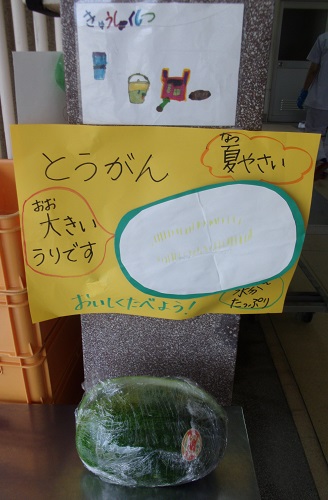 きゅうしょくしつ
とうがん
なつ
夏やさい
おお
大きい
うりです
水分
たっぷり
おいしくたべよう!